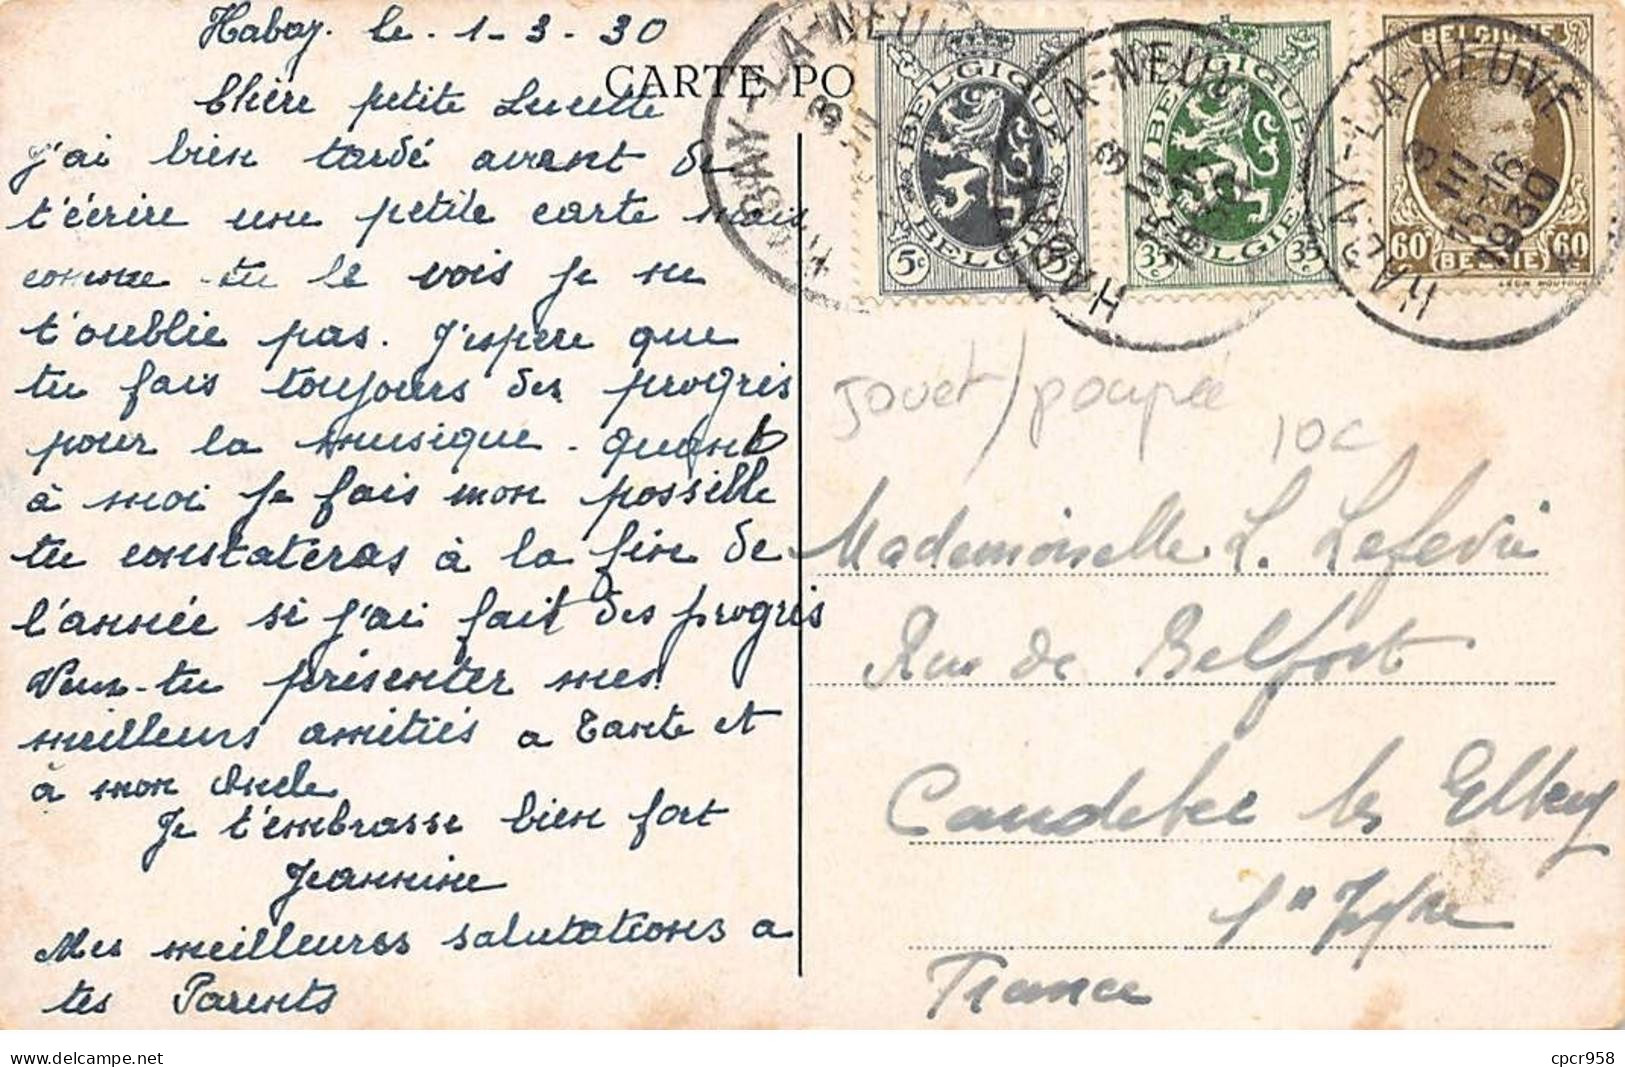 Habay. le. 1-3-30
Chère petite Lucette
j'ai bien tardé avant de
t'écrire une petite carte mais
comme tu le vois je ne
t'oublie pas. J'espere que
tu fais toujours des progrès
pour la musique. quant
à moi je fais mon possible
tu constateras à la fin de
l'année si j'ai fait des progrès
Veux-tu présenter mes
meilleurs amitiés a Tante et
à mon Oncle
Je t'embrasse bien fort
Jeannine
Mes meilleures salutations a
tes Parents
CARTE PO
HABAY-LA-NEUVE
BELGIQUE
5c
BELGIE
HABAY-LA-NEUVE
BELGIQUE
35c
BELGIE
35c
HABAY-LA-NEUVE
3
III
15-16
1930
BELGIQUE
60
(BELGIE)
60c
jouet/poupée
10c
Mademoiselle L. Lefevre
Rue de Belfort
Caudebec les Elbeuf
France
cpcr958